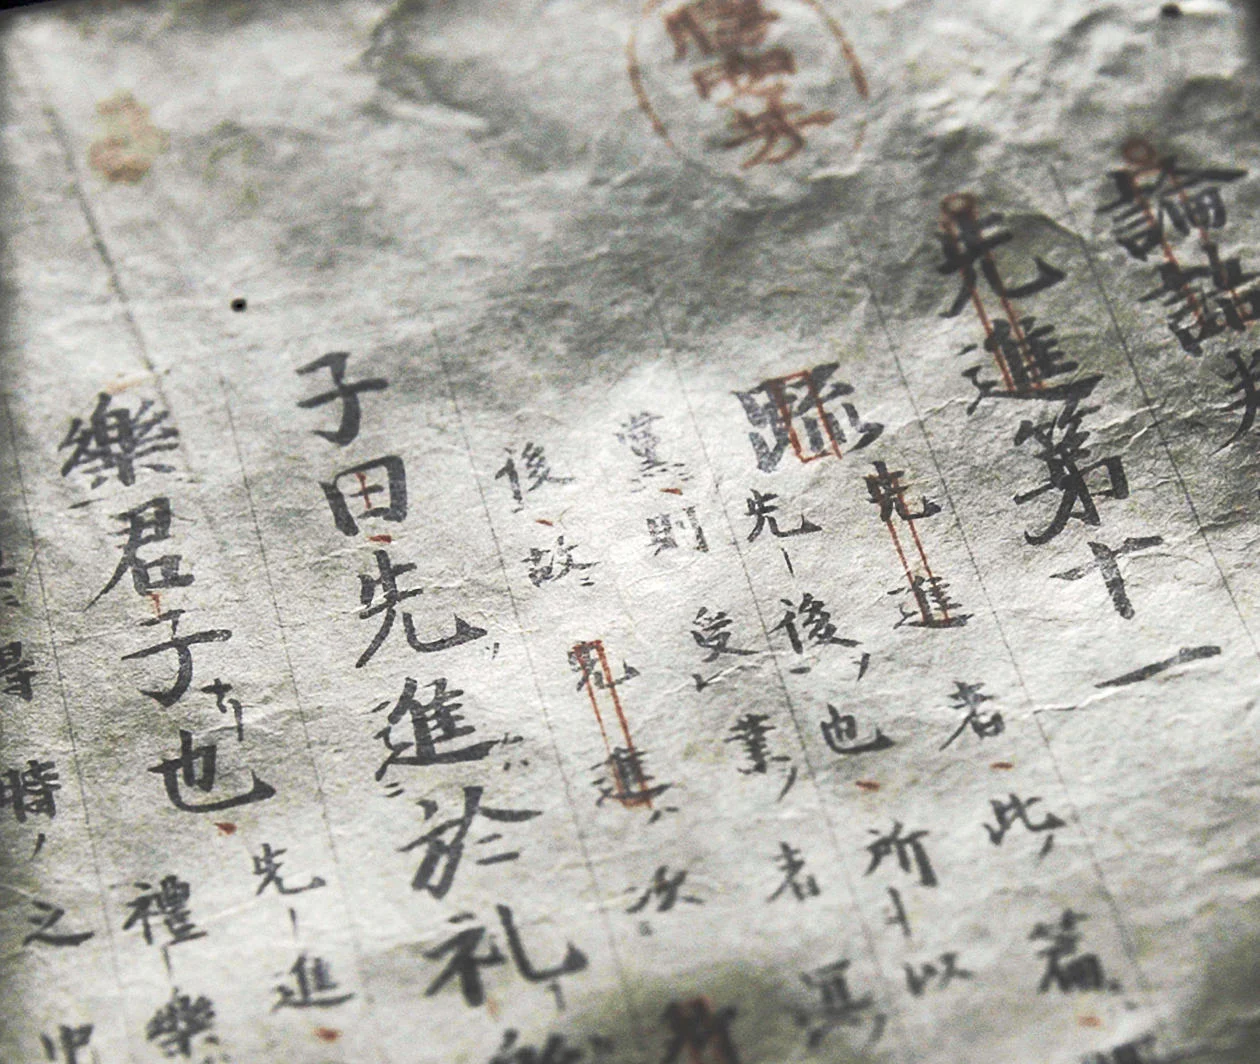 論語
先進第十一
疏先進者此篇
先後也所以
黨則受業者冝
後故先進次
子曰先進於礼
樂君子也先進
禮樂
得時之中